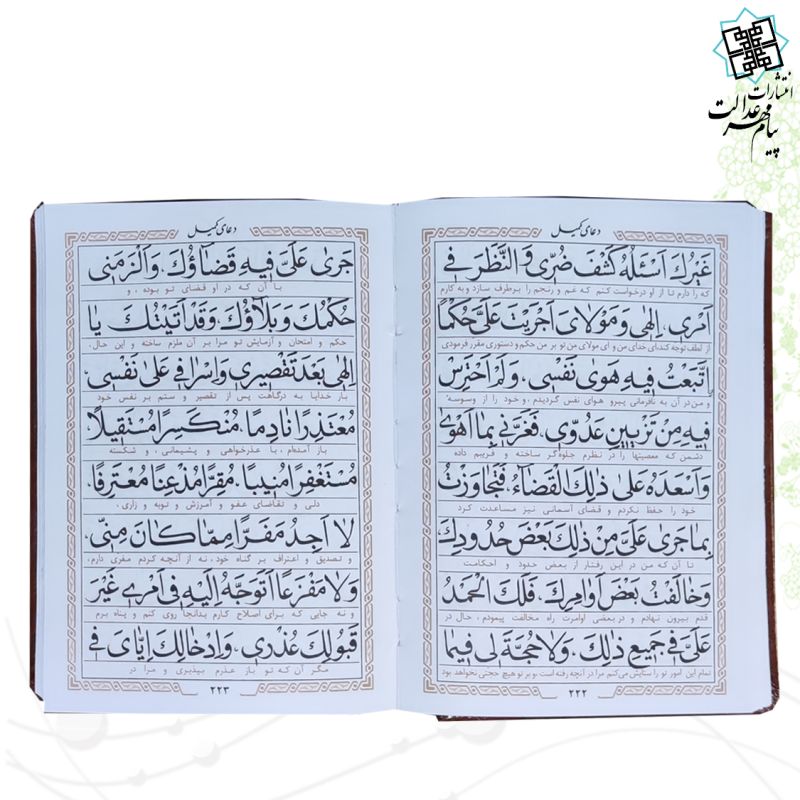 انتشارات
پیام مهر عدالت
دعای کمیل
غَیْرُكَ اَسْئَلُهُ كَشْفَ ضُرّی وَالنَّظَرَ فی
که را دارم تا از او درخواست کنم که غم و رنجم را برطرف سازد و به کارم
اَمْری، اِلهی وَ مَوْلایَ اَجْرَیْتَ عَلَیَّ حُكْماً
از لطف توجه کند ای خدای من و ای مولای من تو بر من حکم و دستوری مقرر فرمودی
اتَّبَعْتُ فیهِ هَوی نَفْسی، وَلَمْ اَحْتَرِسْ
و من در آن به نافرمانی پیرو هوای نفس گردیدم، و خود را از وسوسه
فیهِ مِنْ تَزْیینِ عَدُوّی، فَغَرَّنی بِما اَهْوی
دشمن که معصیتها را در نظرم جلوه‌گر ساخته و فریبم داده
وَاَسْعَدَهُ عَلی ذلِكَ الْقَضآءُ، فَتَجاوَزْتُ
خود را حفظ نکردم و قضای آسمانی نیز مساعدت کرد
بِما جَری عَلَیَّ مِنْ ذلِكَ بَعْضَ حُدُودِكَ
تا آن که من در این رفتار از بعض حدود و احکامت
وَخالَفْتُ بَعْضَ اَوامِرِكَ، فَلَكَ الْحَمْدُ
قدم بیرون نهادم و در بعضی اوامرت راه مخالفت پیمودم، حال در
عَلَیَّ فی جَمیعِ ذلِكَ، وَلا حُجَّةَ لی فیما
تمام این امور تو را ستایش می‌کنم مرا در آنچه رفته است، و بر تو هیچ حجتی نخواهد بود
۲۲۲
دعای کمیل
جَری عَلَیَّ فیهِ قَضآؤُكَ، وَاَلْزَمَنی
با آن که در او قضای تو بوده، و
حُكْمُكَ وَبَلآؤُكَ، وَقَدْ اَتَیْتُكَ یا
حکم و امتحان و آزمایش تو مرا بر آن ملزم ساخته و این حال،
اِلهی بَعْدَ تَقْصیری وَاِسْرافی عَلی نَفْسی،
بار خدایا به درگاهت پس از تقصیر و ستم بر نفس خود
مُعْتَذِراً نادِماً، مُنْكَسِراً مُسْتَقیلاً،
باز آمده‌ام، با عذرخواهی و پشیمانی، و شکسته
مُسْتَغْفِراً مُنیباً، مُقِرّاً مُذْعِناً مُعْتَرِفاً،
دلی و تقاضای عفو و آمرزش و توبه و زاری،
لا اَجِدُ مَفَرّاً مِمّا كانَ مِنّی،
و تصدیق و اعتراف بر گناه خود، نه از آنچه کردم مفری دارم،
وَلا مَفْزَعاً اَتَوَجَّهُ اِلَیْهِ فی اَمْری غَیْرَ
و نه جایی که برای اصلاح کارم بدانجا روی کنم و پناه برم
قَبُولِكَ عُذْری، وَاِدْخالِكَ اِیّایَ فی
مگر آن که تو باز عذرم بپذیری و مرا در
۲۲۳